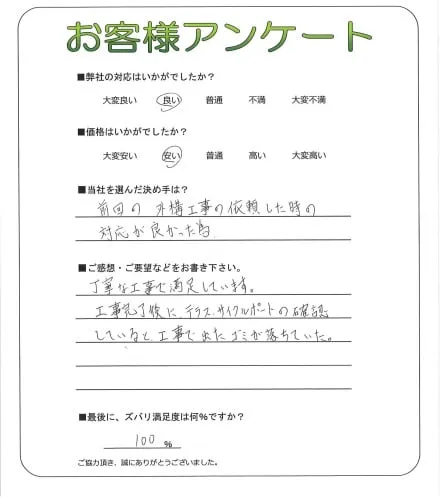 お客様アンケート
■弊社の対応はいかがでしたか?
大変良い 良い 普通 不満 大変不満
■価格はいかがでしたか?
大変安い 安い 普通 高い 大変高い
■当社を選んだ決め手は?
前回の外構工事の依頼した時の
対応が良かった為
■ご感想・ご要望などをお書き下さい。
丁寧な工事で満足しています。
工事完了後に、テラス、サイクルポートの確認
していると、工事で出たゴミが落ちていた。
■最後に、ズバリ満足度は何%ですか?
100 %
ご協力頂き、誠にありがとうございました。